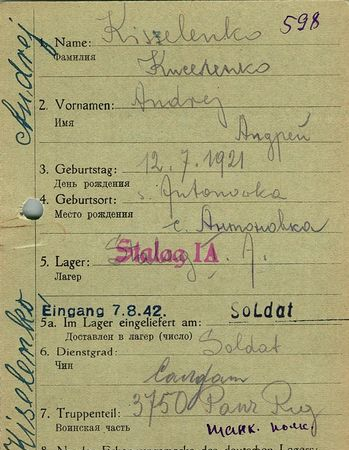 598
Name: Kiszelenko
Фамилия Киселенко
2. Vornamen: Andrej
Имя Андрей
3. Geburtstag: 12.7.1921
День рождения
4. Geburtsort: s. Antonovka
Место рождения с. Антоновка
5. Lager: Stalag IA
Лагер
Eingang 7.8.42. Soldat
5a. Im Lager eingeliefert am:
Доставлен в лагер (число)
6. Dienstgrad: Soldat
Чин Солдат
7. Truppenteil: 3750 Panz Reg
Воинская часть танк. полк.
Kiselenko Andrej